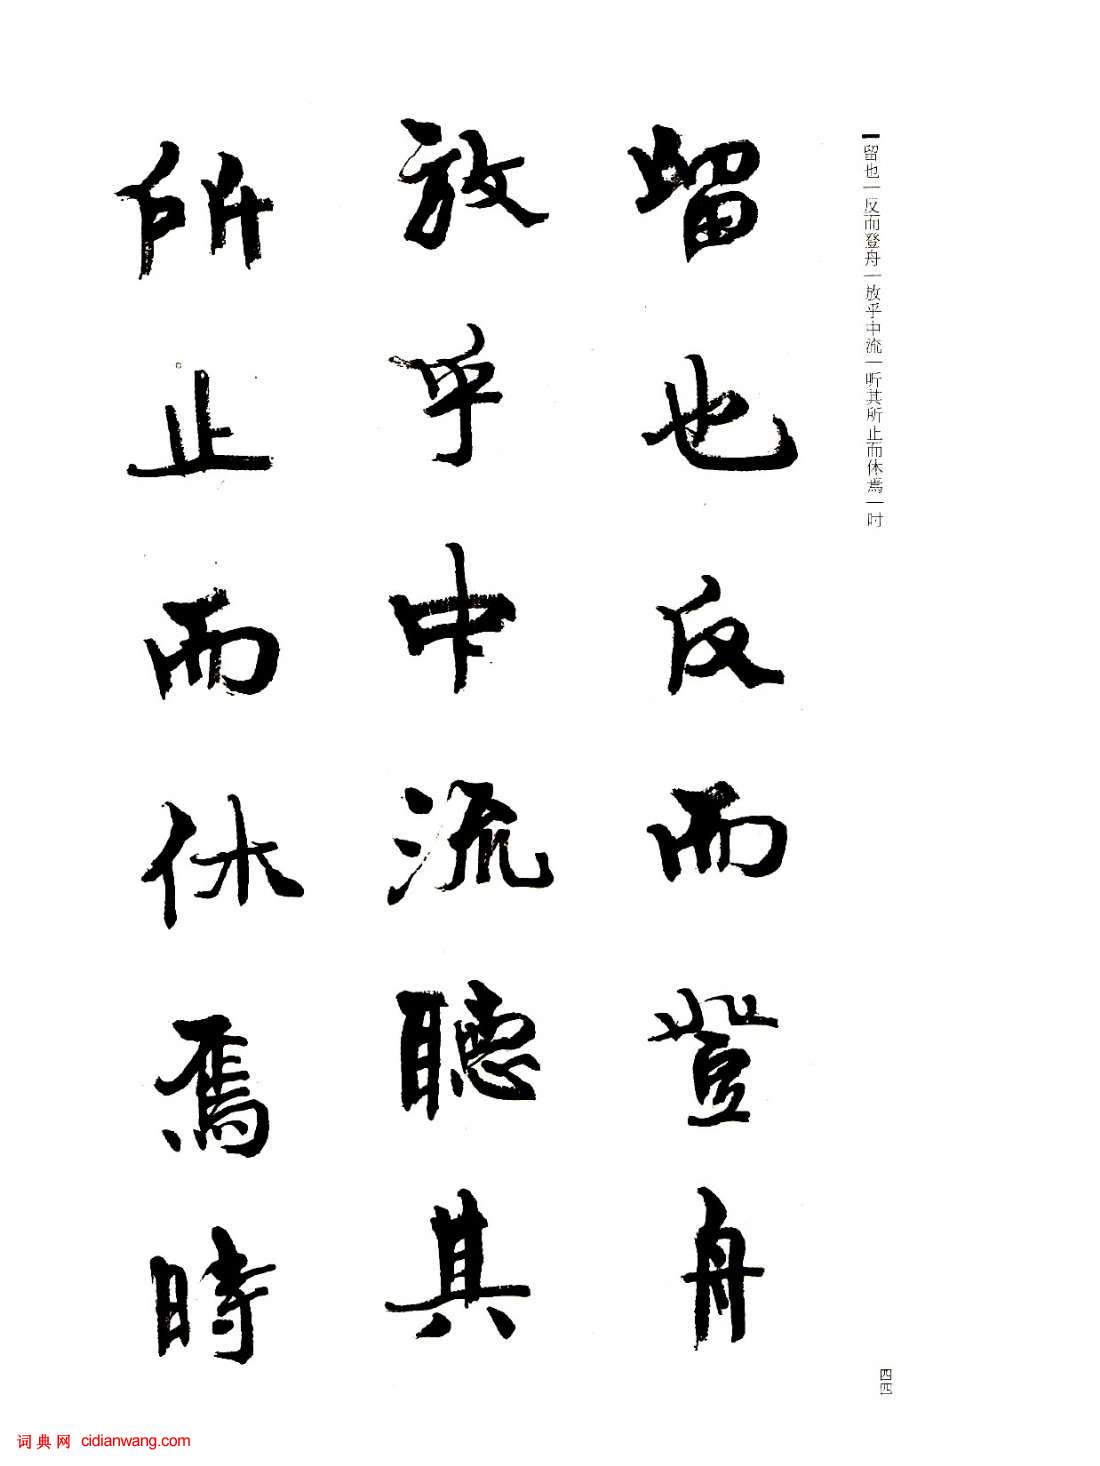 留也一反而登舟一放乎中流一听其所止而休焉一时
留也反而登舟
放乎中流聽其
所止而休焉時
四四
词典网 cidianwang.com